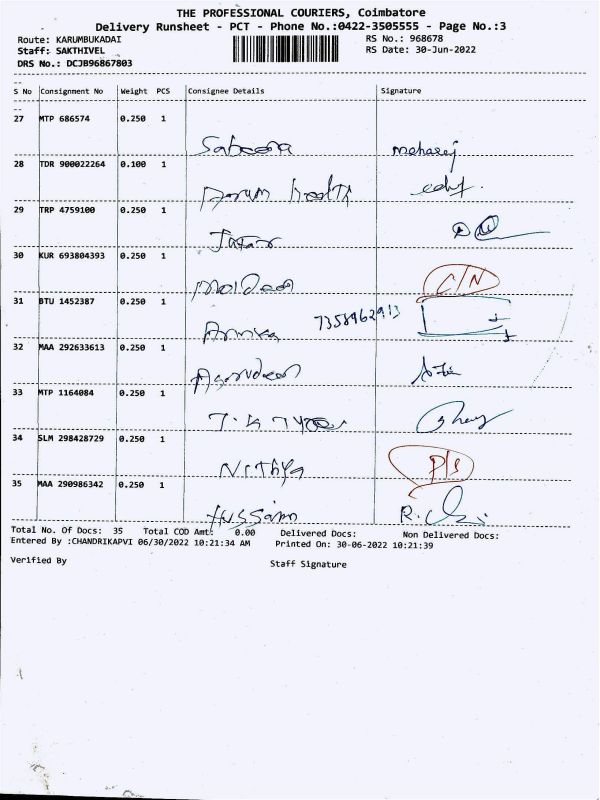 THE PROFESSIONAL COURIERS, Coimbatore
Delivery Runsheet - PCT - Phone No.:0422-3505555 - Page No.:3
Route: KARUMBUKADAI RS No.: 968678
Staff: SAKTHIVEL RS Date: 30-Jun-2022
DRS No.: DCJB96867803
S No Consignment No Weight PCS Consignee Details Signature
27 MTP 686574 0.250 1
Sabeena
28 TDR 900022264 0.100 1
29 TRP 4759100 0.250 1
30 KUR 693804393 0.250 1
C/N
31 BTU 1452387 0.250 1
7358962913
32 MAA 292633613 0.250 1
33 MTP 1164084 0.250 1
34 SLM 298428729 0.250 1
Nithya P/s
35 MAA 290986342 0.250 1
Total No. Of Docs: 35 Total COD Amt: 0.00 Delivered Docs: Non Delivered Docs:
Entered By :CHANDRIKAPVI 06/30/2022 10:21:34 AM Printed On: 30-06-2022 10:21:39
Verified By Staff Signature